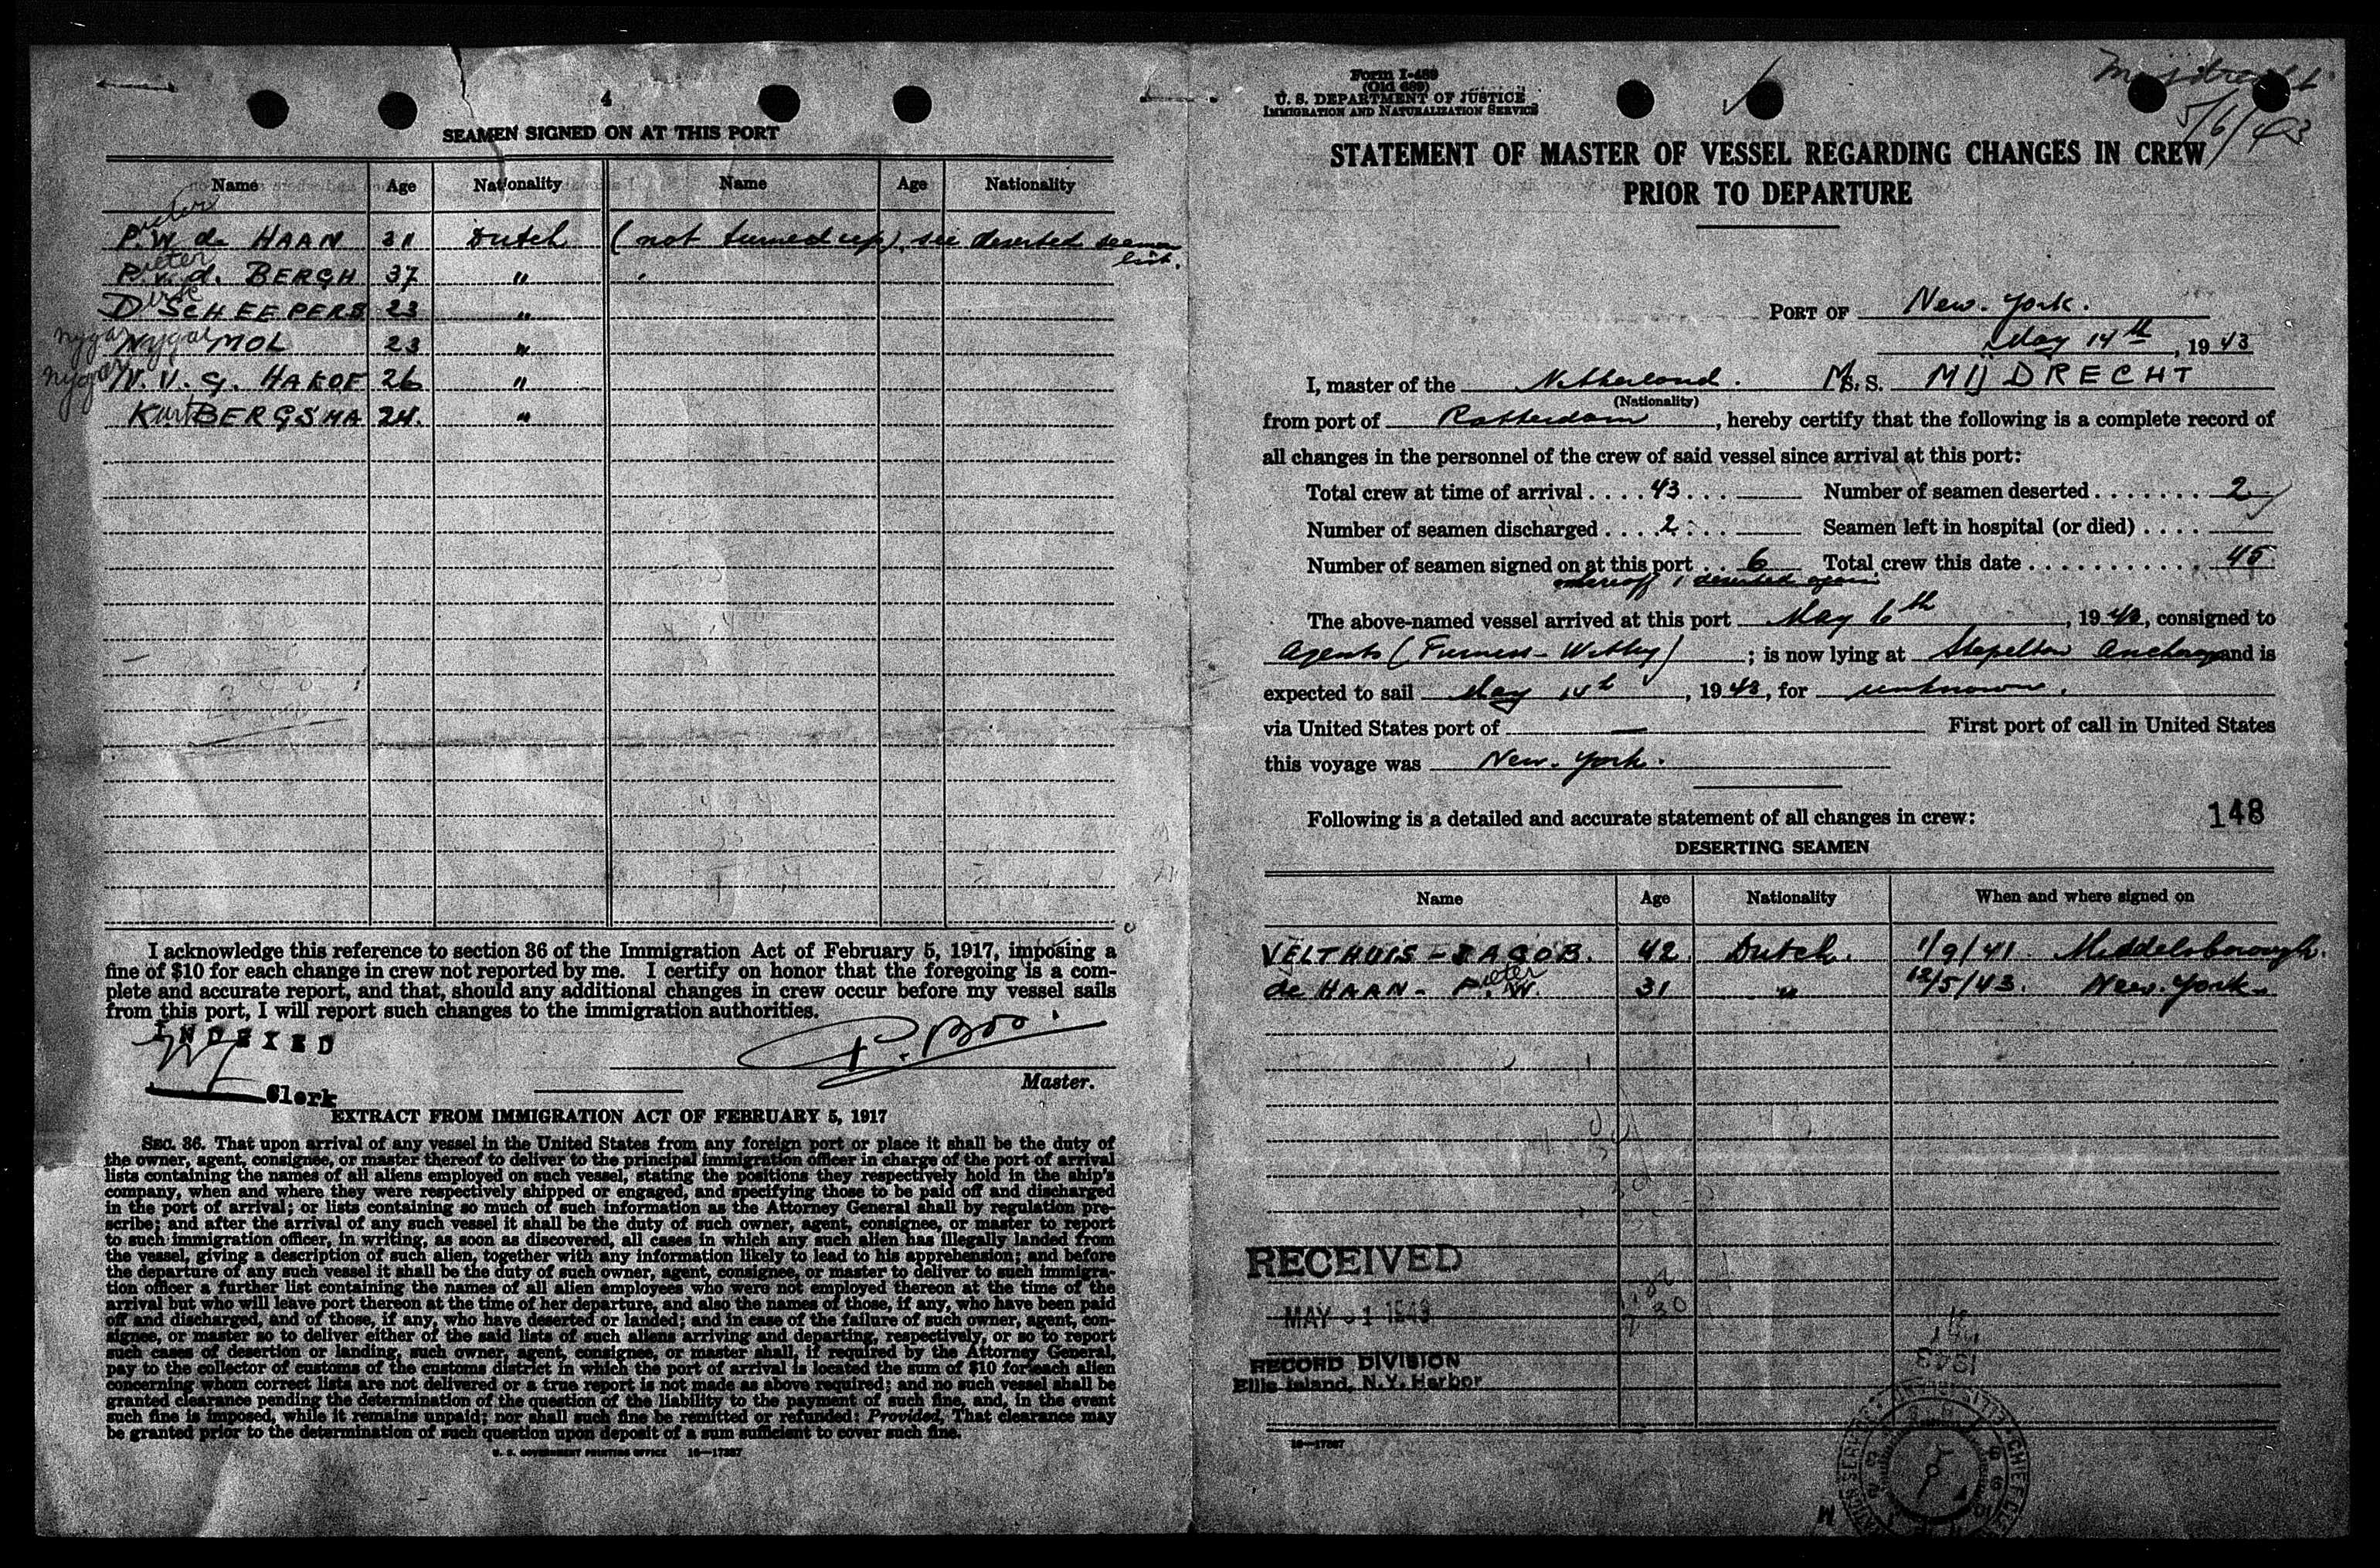 4
SEAMEN SIGNED ON AT THIS PORT
Name Age Nationality Name Age Nationality
Pieter
P. W. de HAAN 31 Dutch (not turned up), see deserted seamen list.
Pieter
P. v. d. BERGH 37 "
Dirk
D SCHEEPERS 23 "
Nygal MOL 23 "
N. V. G. HAKOE 26 "
Kurt BERGSMA 24. "
I acknowledge this reference to section 36 of the Immigration Act of February 5, 1917, imposing a
fine of $10 for each change in crew not reported by me. I certify on honor that the foregoing is a com-
plete and accurate report, and that, should any additional changes in crew occur before my vessel sails
from this port, I will report such changes to the immigration authorities.
INDEXED
P. Boo.
Master.
Clerk
EXTRACT FROM IMMIGRATION ACT OF FEBRUARY 5, 1917
SEC. 36. That upon arrival of any vessel in the United States from any foreign port or place it shall be the duty of
the owner, agent, consignee, or master thereof to deliver to the principal immigration officer in charge of the port of arrival
lists containing the names of all aliens employed on such vessel, stating the positions they respectively hold in the ship's
company, when and where they were respectively shipped or engaged, and specifying those to be paid off and discharged
in the port of arrival; or lists containing so much of such information as the Attorney General shall by regulation pre-
scribe; and after the arrival of any such vessel it shall be the duty of such owner, agent, consignee, or master to report
to such immigration officer, in writing, as soon as discovered, all cases in which any such alien has illegally landed from
the vessel, giving a description of such alien, together with any information likely to lead to his apprehension; and before
the departure of any such vessel it shall be the duty of such owner, agent, consignee, or master to deliver to such immigra-
tion officer a further list containing the names of all alien employees who were not employed thereon at the time of the
arrival but who will leave port thereon at the time of her departure, and also the names of those, if any, who have been paid
off and discharged, and of those, if any, who have deserted or landed; and in case of the failure of such owner, agent, con-
signee, or master so to deliver either of the said lists of such aliens arriving and departing, respectively, or so to report
such cases of desertion or landing, such owner, agent, consignee, or master shall, if required by the Attorney General,
pay to the collector of customs of the customs district in which the port of arrival is located the sum of $10 for each alien
concerning whom correct lists are not delivered or a true report is not made as above required; and no such vessel shall be
granted clearance pending the determination of the question of the liability to the payment of such fine, and, in the event
such fine is imposed, while it remains unpaid; nor shall such fine be remitted or refunded: Provided, That clearance may
be granted prior to the determination of such question upon deposit of a sum sufficient to cover such fine.
U. S. GOVERNMENT PRINTING OFFICE 16—17387
Form I-489
(Old 689)
U. S. DEPARTMENT OF JUSTICE
IMMIGRATION AND NATURALIZATION SERVICE
Mijdrecht
5/6/43
STATEMENT OF MASTER OF VESSEL REGARDING CHANGES IN CREW
PRIOR TO DEPARTURE
PORT OF New. York.
May 14th, 1943
I, master of the Netherland. M.S. S. MIJDRECHT
(Nationality)
from port of Rotterdam, hereby certify that the following is a complete record of
all changes in the personnel of the crew of said vessel since arrival at this port:
Total crew at time of arrival .... 43 ... Number of seamen deserted ....... 2
Number of seamen discharged .... 2 ... Seamen left in hospital (or died) ....
Number of seamen signed on at this port .. 6 Total crew this date ........... 45
whereoff 1 deserted again
The above-named vessel arrived at this port May 6th, 1943, consigned to
Agents (Furness-Withy); is now lying at Stapelton Anchorage and is
expected to sail May 14th, 1943, for unknown.
via United States port of — First port of call in United States
this voyage was New. York.
Following is a detailed and accurate statement of all changes in crew: 148
DESERTING SEAMEN
Name Age Nationality When and where signed on
VELTHUIS - JACOB. 42 Dutch. 1/9/41 Middelsborough.
Pieter
de HAAN - P. W. 31 " 12/5/43. New. York.
RECEIVED
MAY 1 1943
RECORD DIVISION
Ellis Island, N.Y. Harbor
1943
16—17387